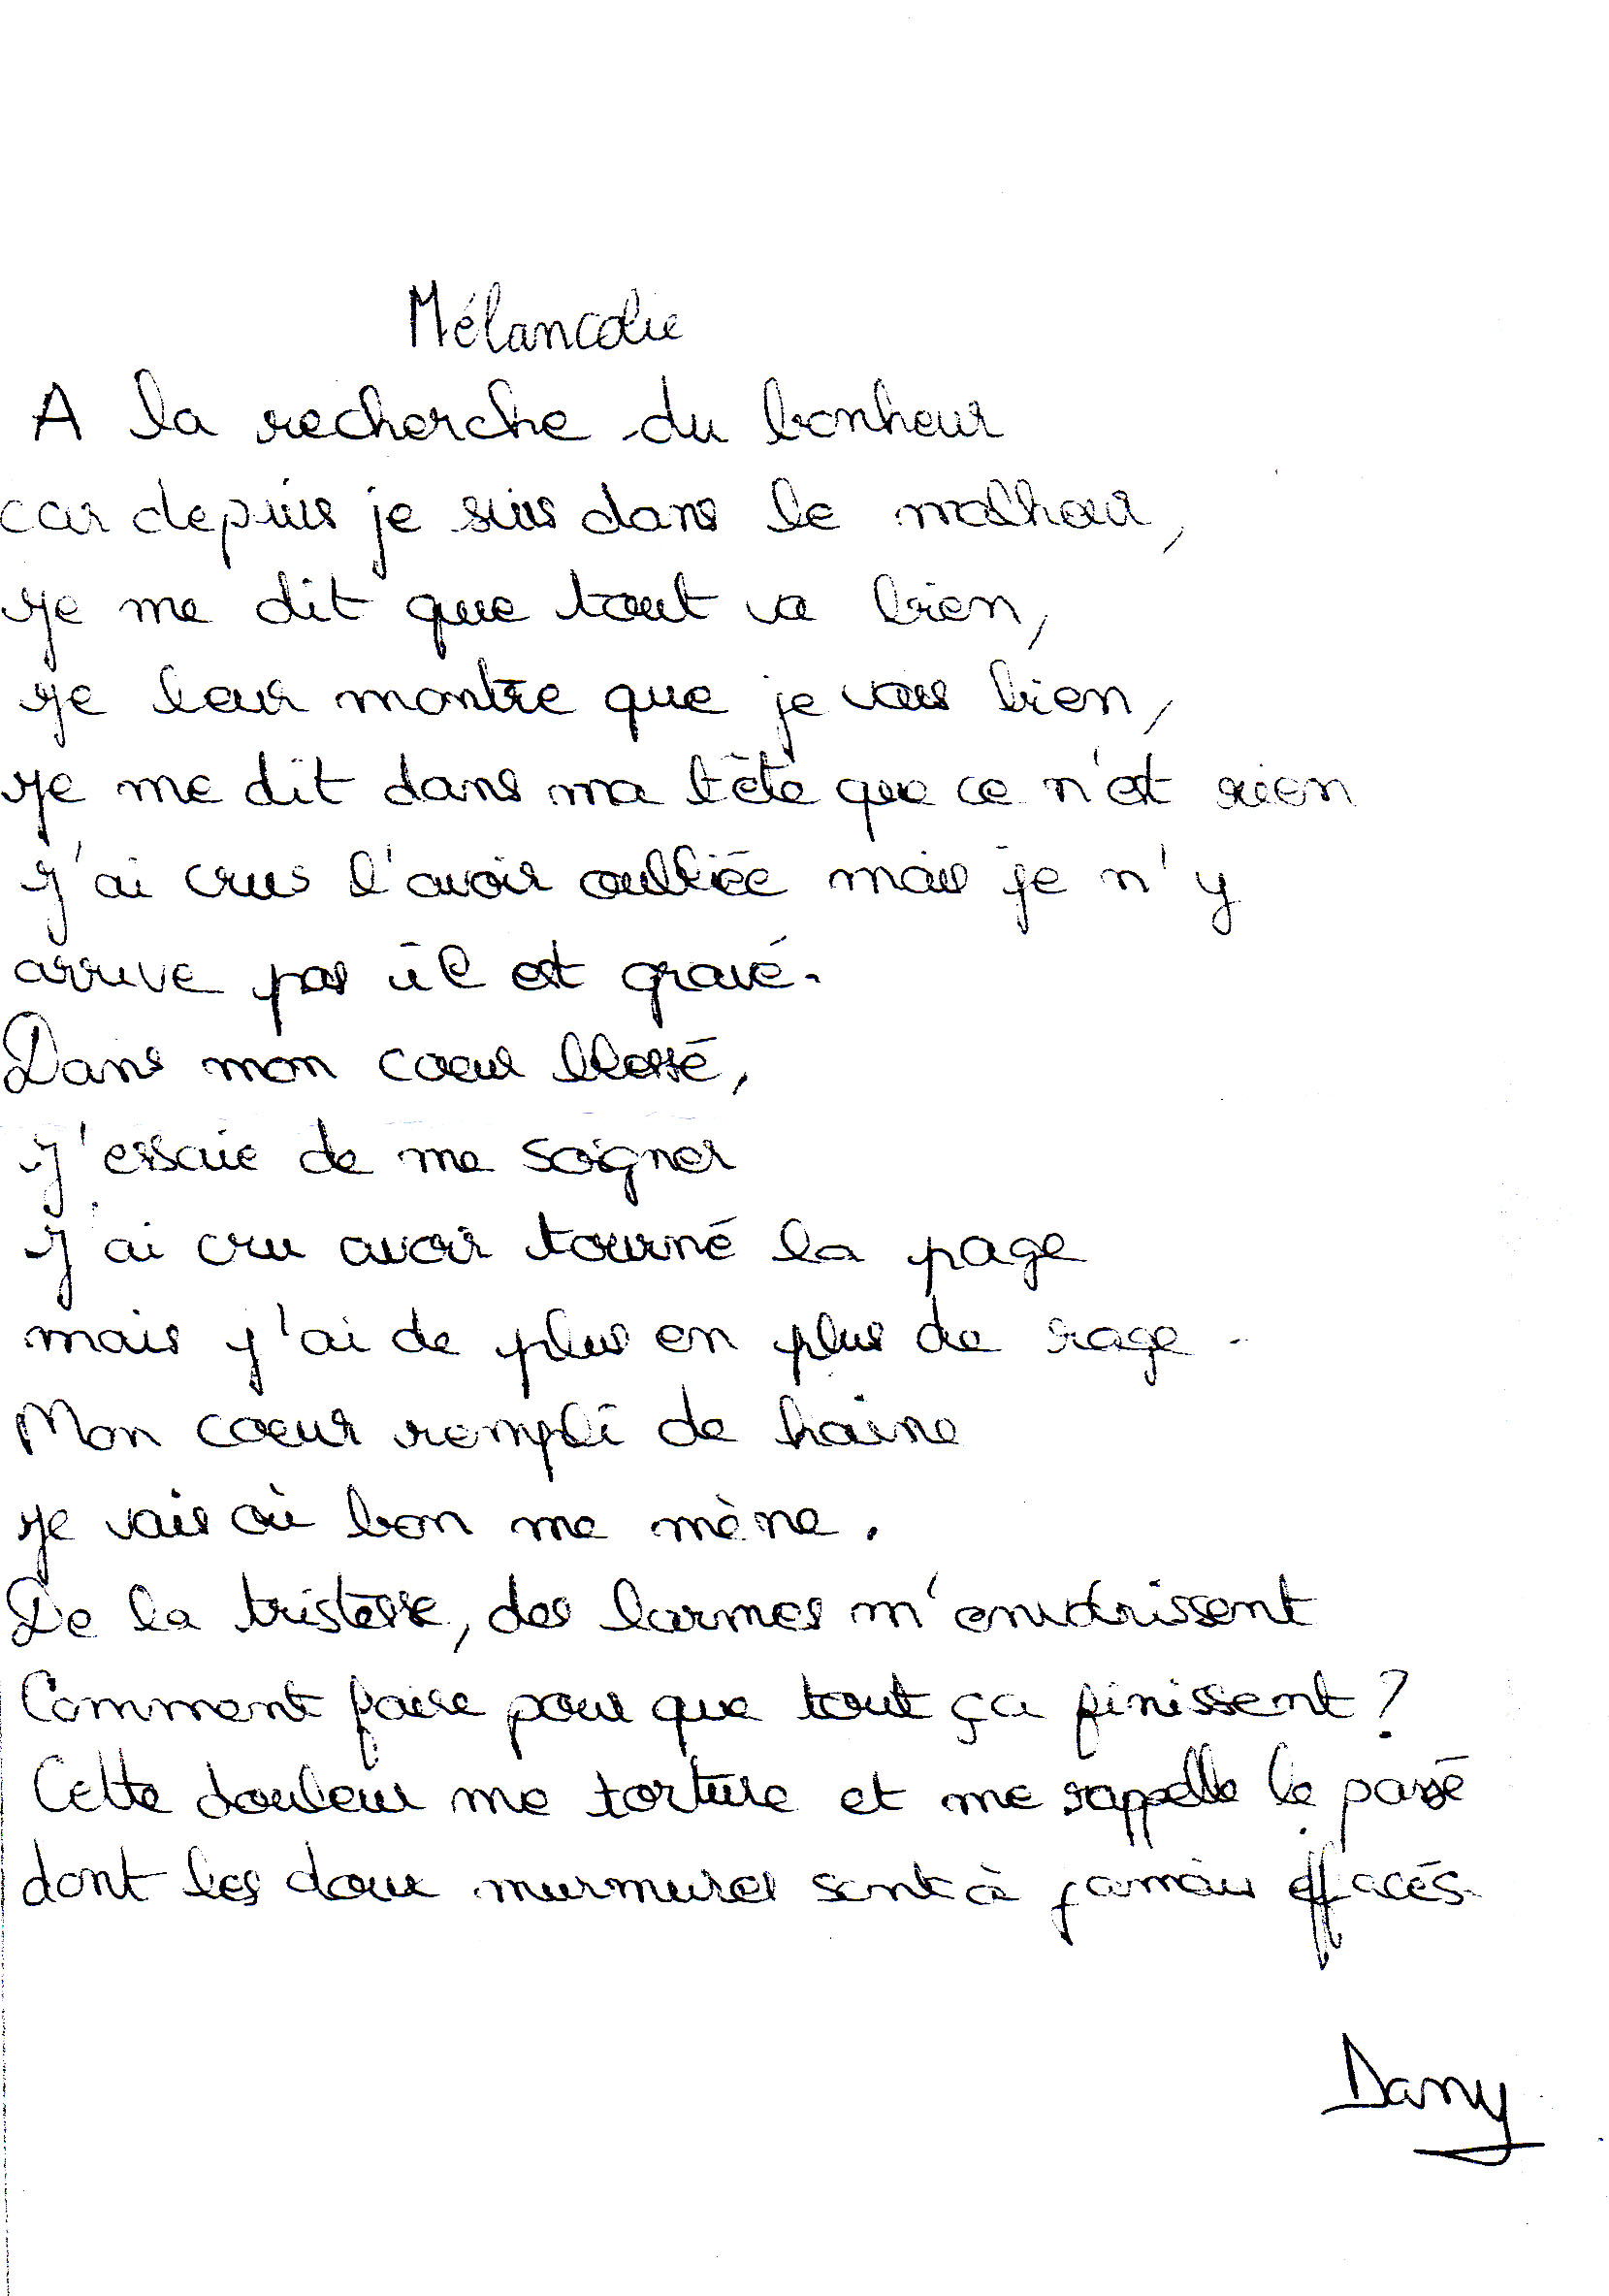 Mélancolie
A la recherche du bonheur
car depuis je suis dans le malheur,
Je me dit que tout va bien,
Je leur montre que je vais bien,
Je me dit dans ma tête que ce n'est rien
J'ai crus l'avoir oubliée mais je n'y
arrive pas il est gravé.
Dans mon coeur blessé,
J'essaie de me soigner
J'ai cru avoir tourné la page
mais j'ai de plus en plus de rage.
Mon coeur rempli de haine
Je vais où bon me mène.
De la tristesse, des larmes m'envahissent
Comment faire pour que tout ça finissent ?
Cette douleur me torture et me rappelle le passé
dont les doux murmures sont à jamais effacés.
Dany